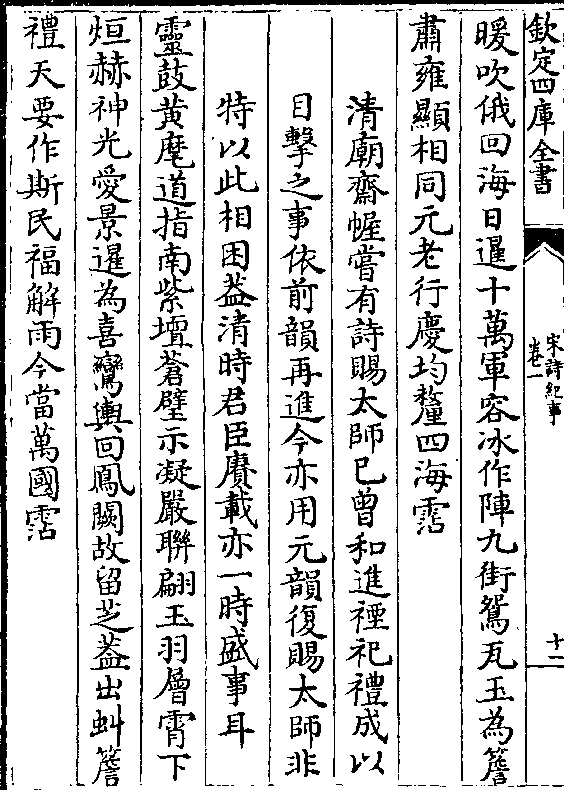 欽定四庫全書
宋詩紀事
卷一
十二
暖吹俄回海日暹十萬軍容冰作陣九街鴛瓦玉為簷
肅雍顯相同元老行慶均釐四海霑
清廟齋幄嘗有詩賜太師已曾和進禋祀禮成以
目擊之事依前韻再進今亦用元韻復賜太師非
特以此相困葢清時君臣賡載亦一時盛事耳
靈鼓黃麾道指南紫壇蒼璧示凝嚴聨翩玉羽層霄下
烜赫神光愛景暹為喜鸞輿回鳳闕故留芝葢出虬簷
禮天要作斯民福解雨今當萬國霑